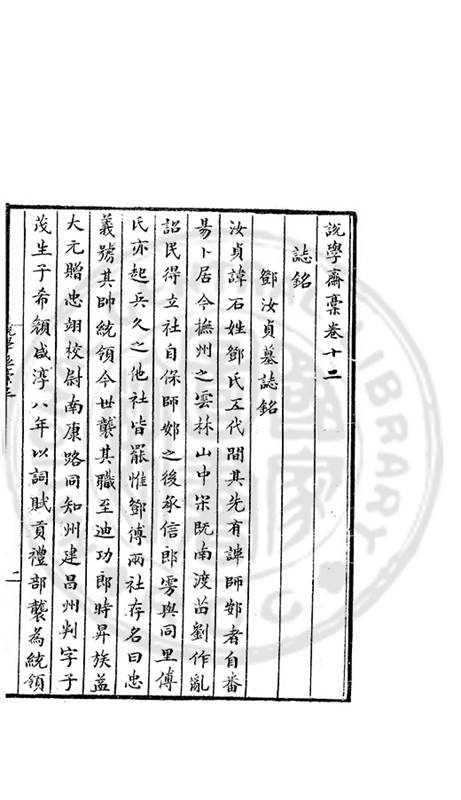 說學齋藁卷十二
誌銘
鄧汝貞墓誌銘
汝貞諱石姓鄧氏五代間其先有諱師郯者自番
昜卜居今撫州之雲林山中宋既南渡苗劉作亂
詔民得立社自保師郯之後承信郎雱與同里傅
氏亦起兵久之他社皆罷惟鄧傅兩社存名曰忠
義號其帥統領令世襲其職至迪功郎時昇族益
大元贈忠翊校尉南康路同知州建昌州判字子
茂生子希顏咸淳八年以詞賦貢禮部襲為統領
LIBRARY